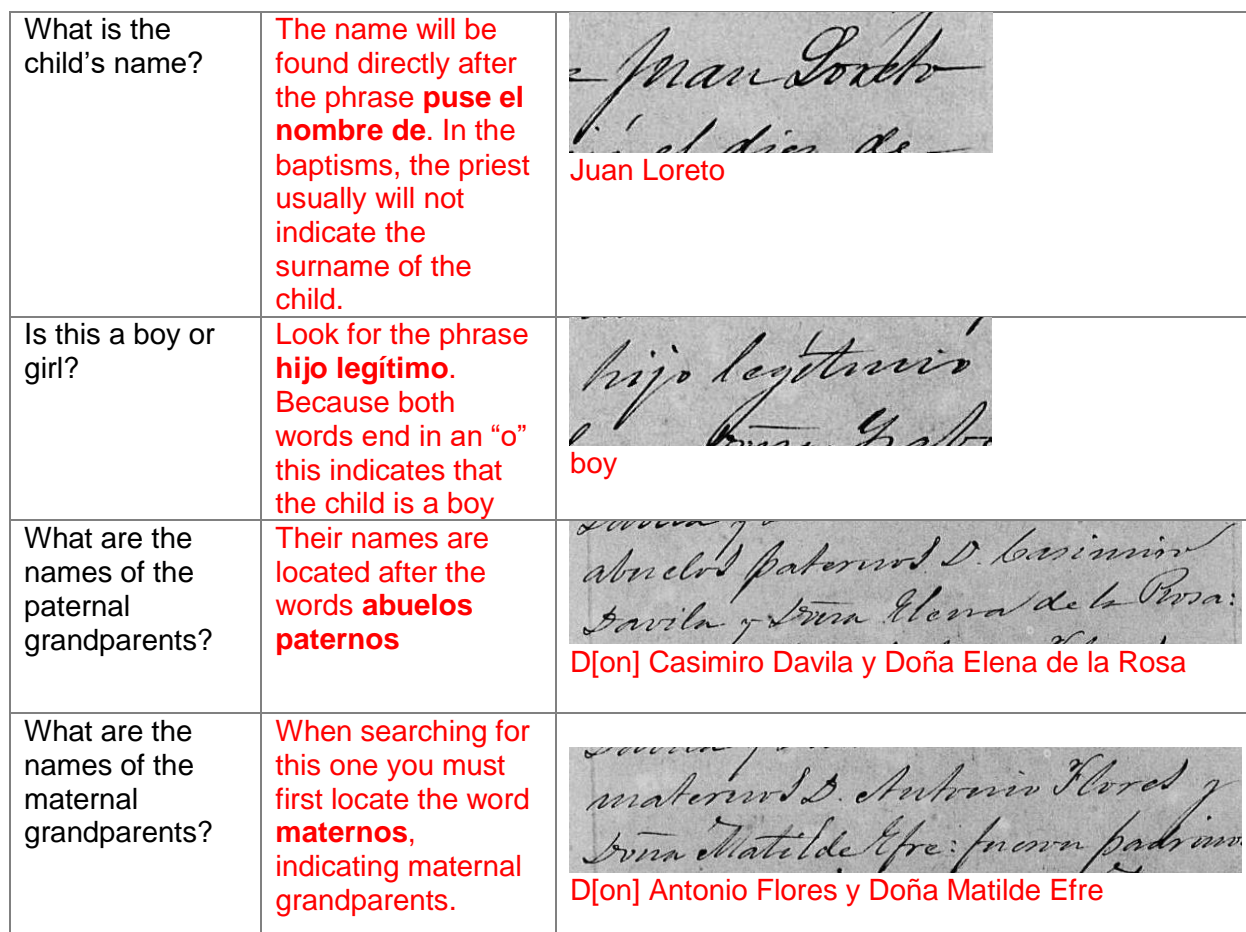 What is the
child's name?
The name will be
found directly after
the phrase puse el
nombre de. In the
baptisms, the priest
usually will not
indicate the
surname of the
child.
Juan Loreto
el dies de
Juan Loreto
Is this a boy or
girl?
Look for the phrase
hijo legítimo.
Because both
words end in an “o”
this indicates that
the child is a boy
hijo legítimo
boy
What are the
names of the
paternal
grandparents?
Their names are
located after the
words abuelos
paternos
abuelos paternos D. Casimiro
Davila y Doña Elena de la Rosa:
D[on] Casimiro Davila y Doña Elena de la Rosa
What are the
names of the
maternal
grandparents?
When searching for
this one you must
first locate the word
maternos,
indicating maternal
grandparents.
maternos D. Antonio Flores y
Doña Matilde Efre: fueron padrinos
D[on] Antonio Flores y Doña Matilde Efre